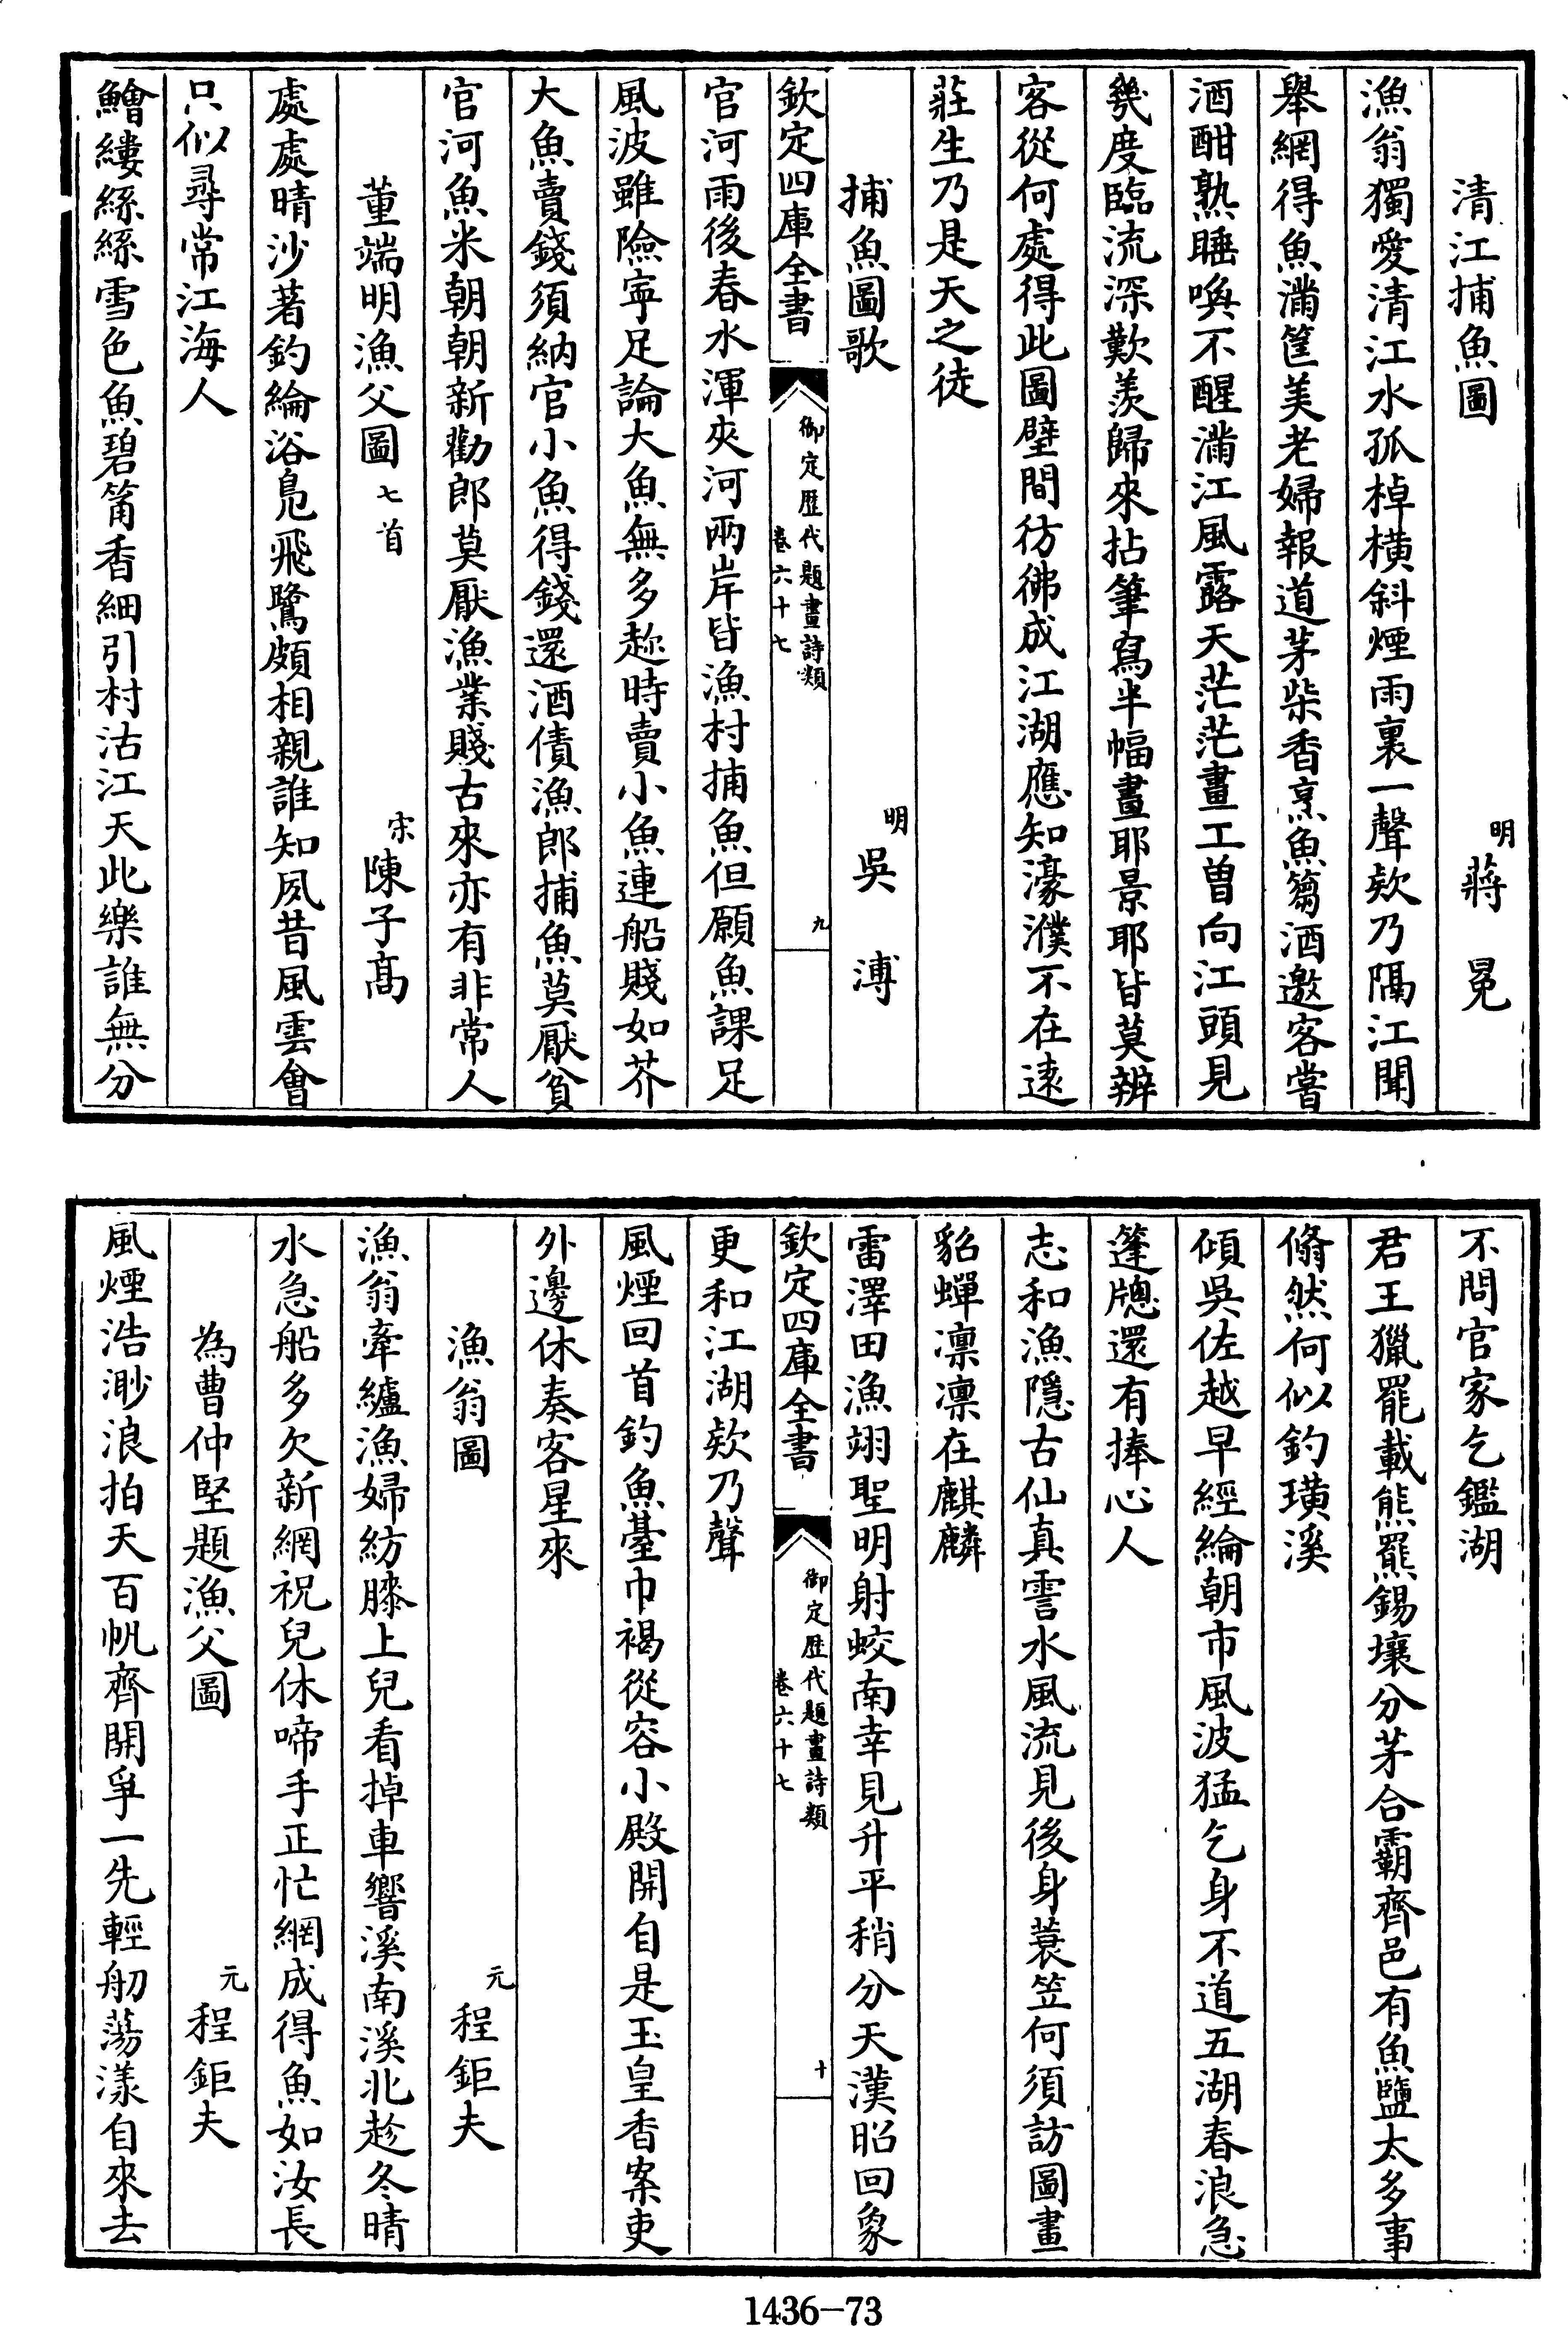 清江捕魚圖
明蔣冕
漁翁獨愛清江水孤棹横斜煙雨裏一聲欸乃隔江聞
舉網得魚滿筐美老婦報道茅柴香烹魚芻酒邀客嘗
酒酣熟睡喚不醒滿江風露天茫茫畫工曽向江頭見
幾度臨流深歎羨歸來拈筆寫半幅畫耶景耶皆莫辨
客從何處得此圖壁間彷彿成江湖應知濠濮不在逺
莊生乃是天之徒
捕魚圖歌
明吳溥
欽定四庫全書
御定歴代題畫詩類
卷六十七
九
官河雨後春水渾夾河兩岸皆漁村捕魚但願魚課足
風波雖險寜足論大魚無多趂時賣小魚連船賤如芥
大魚賣錢須納官小魚得錢還酒債漁郎捕魚莫厭貧
官河魚米朝朝新勸郎莫厭漁業賤古來亦有非常人
董端明漁父圖七首
宋陳子髙
處處晴沙著釣綸浴鳬飛鷺頗相親誰知夙昔風雲會
只似尋常江海人
鱠縷絲絲雪色魚碧筩香細引村沽江天此樂誰無分
不問官家乞鑑湖
君王獵罷載熊羆錫壤分茅合霸齊邑有魚鹽太多事
翛然何似釣璜溪
傾吳佐越早經綸朝市風波猛乞身不道五湖春浪急
篷牕還有捧心人
志和漁隱古仙真霅水風流見後身蓑笠何須訪圖畫
貂蟬凛凛在麒麟
雷澤田漁翊聖明射蛟南幸見升平稍分天漢昭回象
欽定四庫全書
御定歴代題畫詩類
卷六十七
十
更和江湖欸乃聲
風煙回首釣魚臺巾褐從容小殿開自是玉皇香案吏
外邊休奏客星來
漁翁圖
元程鉅夫
漁翁牽纑漁婦紡膝上兒看掉車響溪南溪北趁冬晴
水急船多欠新網祝兒休啼手正忙網成得魚如汝長
為曹仲堅題漁父圖
元程鉅夫
風煙浩渺浪拍天百帆齊開爭一先輕舠蕩漾自來去
1436-73